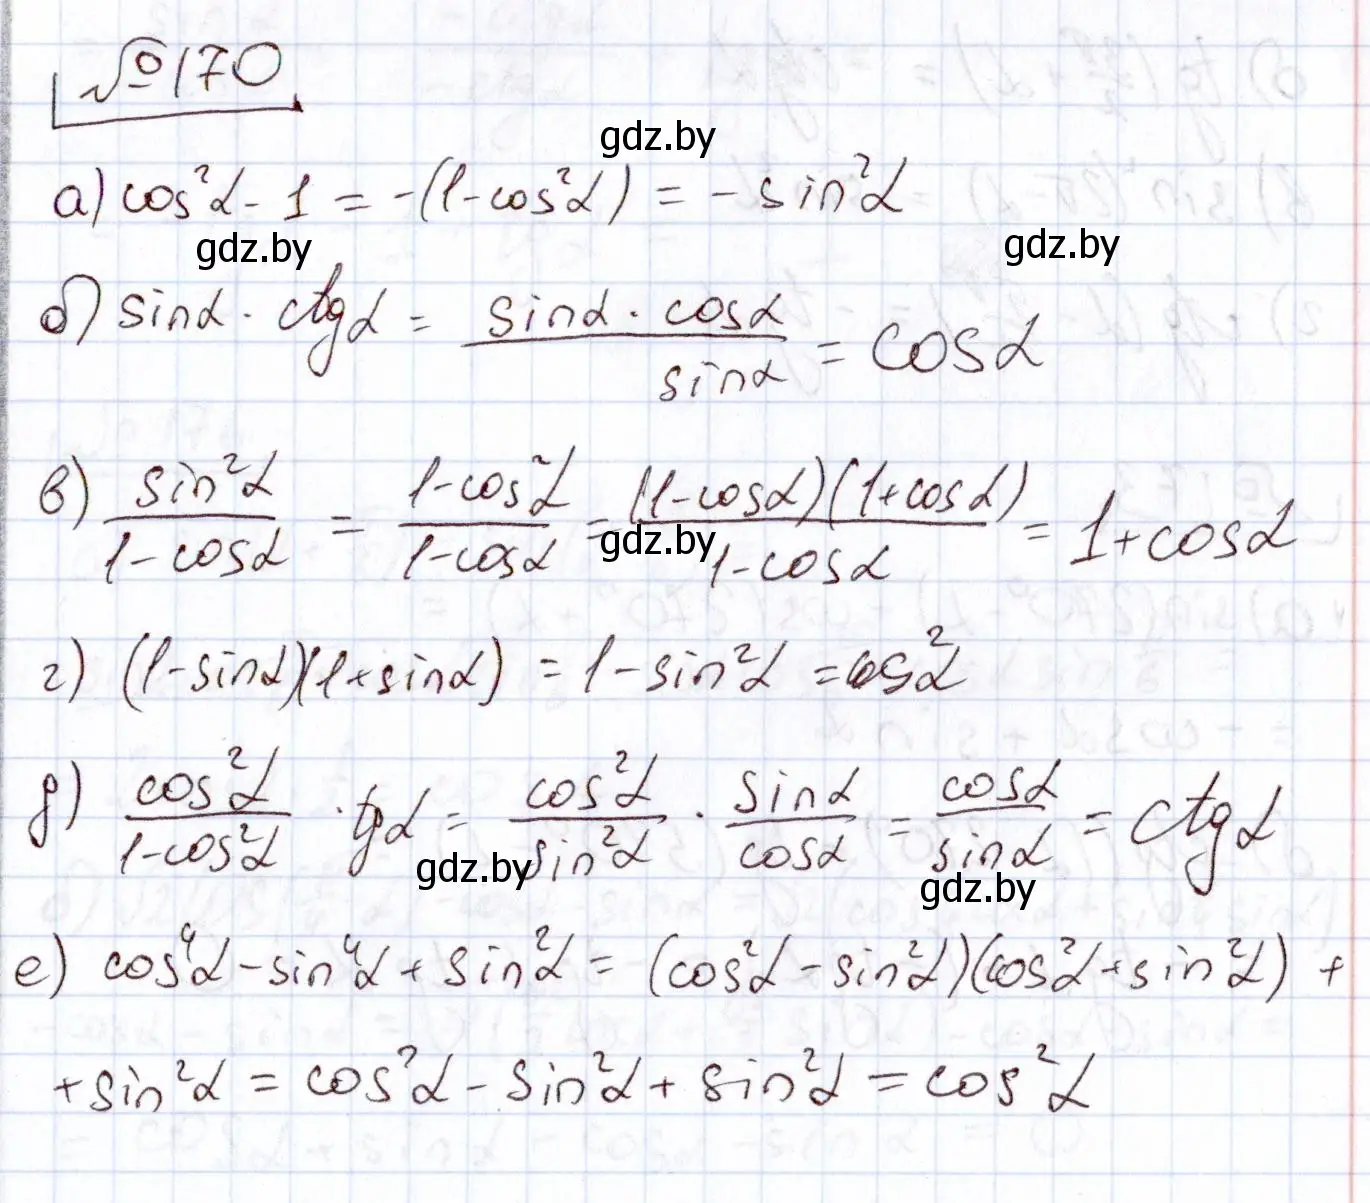 №170
gdz.by
а) cos²α - 1 = -(1-cos²α) = -sin²α
gdz.by
gdz.by
б) sinα · ctgα = (sinα · cosα)/sinα = cosα
в) sin²α/(1-cosα) = (1-cos²α)/(1-cosα) = (1-cosα)(1+cosα)/(1-cosα) = 1+cosα
gdz.by
г) (1-sinα)(1+sinα) = 1-sin²α = cos²α
д) cos²α/(1-cos²α) · tgα = cos²α/sin²α · sinα/cosα = cosα/sinα = ctgα
gdz.by
gdz.by
е) cos⁴α - sin⁴α + sin²α = (cos²α - sin²α)(cos²α + sin²α) +
+ sin²α = cos²α - sin²α + sin²α = cos²α